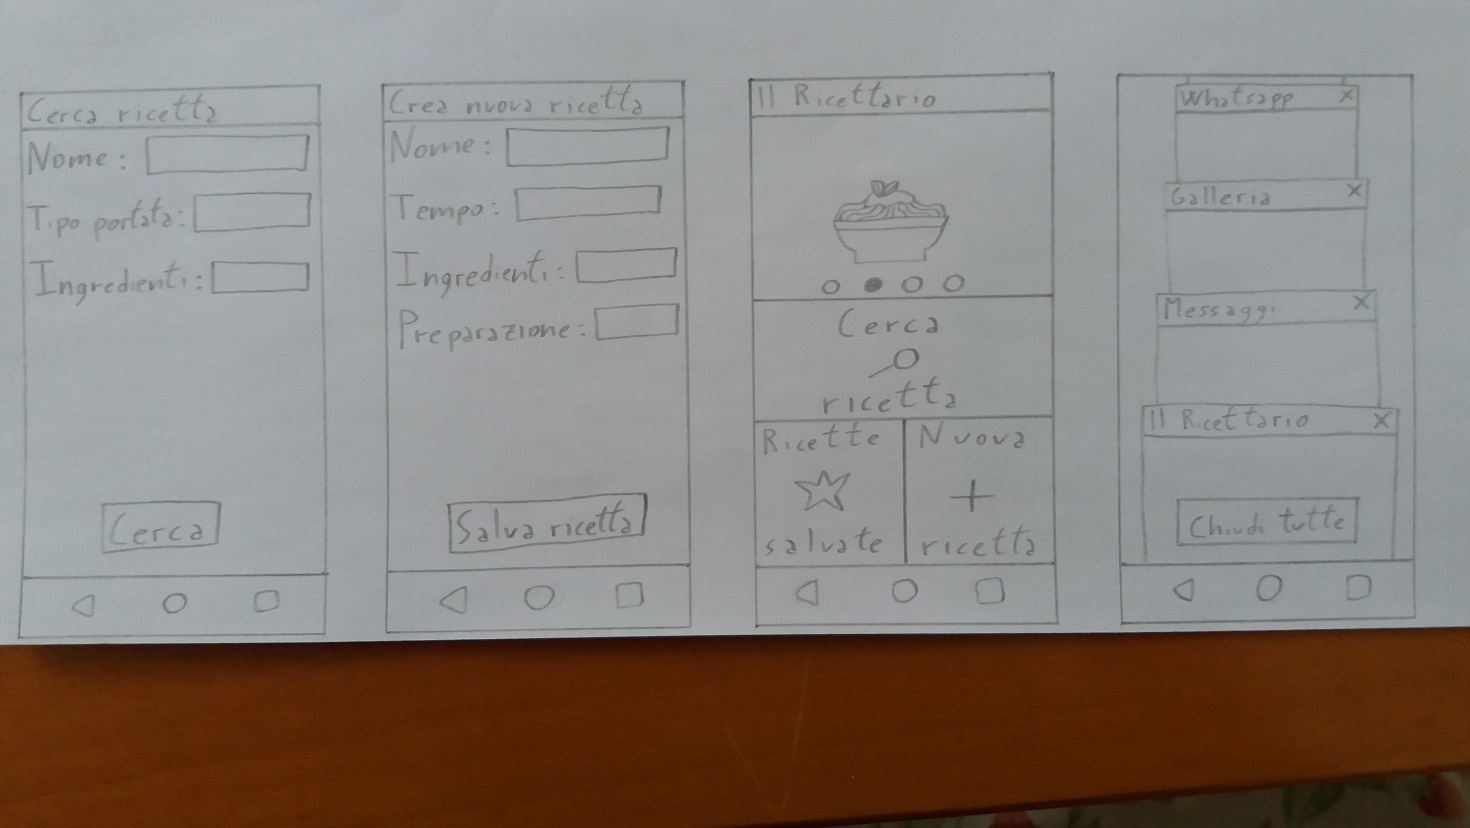 Cerca ricetta
Nome:
Tipo portata:
Ingredienti:
Cerca
Crea nuova ricetta
Nome:
Tempo:
Ingredienti:
Preparazione:
Salva ricetta
Il Ricettario
Cerca
ricetta
Ricette
salvate
Nuova
ricetta
Whatsapp X
Galleria X
Messaggi X
Il Ricettario X
Chiudi tutte